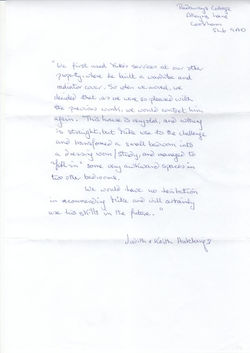 Cottage
Lane
Cookham
SL6 9AD
"We first used Mike's services at our other
property, where he built a wardrobe and
radiator cover. So when we moved, we
decided that as we were so pleased with
the previous work, we would contact him
again. This house is very old, and nothing
is straight, but Mike rose to the challenge
and transformed a small bedroom into
a dressing room / study, and managed to
"fill in" some very awkward spaces in
two other bedrooms.
We would have no hesitation
in recommending Mike and will certainly
use his skills in the future."
Judith & Keith